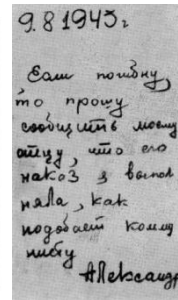 9.8 1943 г
Если погибну,
то прошу
сообщить моему
отцу, что его
наказ я выпол
няла, как
подобает комму
нисту
Александр